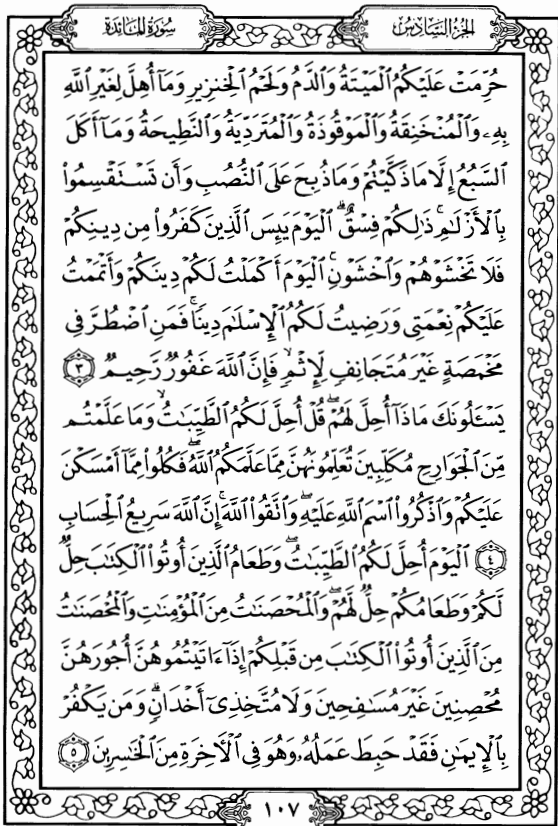 سُورَةُ المَائدة
الجزء السَّادِس
حُرِّمَتْ عَلَيْكُمُ ٱلْمَيْتَةُ وَٱلدَّمُ وَلَحْمُ ٱلْخِنزِيرِ وَمَآ أُهِلَّ لِغَيْرِ ٱللَّهِ
بِهِۦ وَٱلْمُنْخَنِقَةُ وَٱلْمَوْقُوذَةُ وَٱلْمُتَرَدِّيَةُ وَٱلنَّطِيحَةُ وَمَآ أَكَلَ
ٱلسَّبُعُ إِلَّا مَا ذَكَّيْتُمْ وَمَا ذُبِحَ عَلَى ٱلنُّصُبِ وَأَن تَسْتَقْسِمُوا۟
بِٱلْأَزْلَٰمِ ۚ ذَٰلِكُمْ فِسْقٌ ۗ ٱلْيَوْمَ يَئِسَ ٱلَّذِينَ كَفَرُوا۟ مِن دِينِكُمْ
فَلَا تَخْشَوْهُمْ وَٱخْشَوْنِ ۚ ٱلْيَوْمَ أَكْمَلْتُ لَكُمْ دِينَكُمْ وَأَتْمَمْتُ
عَلَيْكُمْ نِعْمَتِى وَرَضِيتُ لَكُمُ ٱلْإِسْلَٰمَ دِينًا ۚ فَمَنِ ٱضْطُرَّ فِى
مَخْمَصَةٍ غَيْرَ مُتَجَانِفٍ لِّإِثْمٍ ۙ فَإِنَّ ٱللَّهَ غَفُورٌ رَّحِيمٌ ٣
يَسْـَٔلُونَكَ مَاذَآ أُحِلَّ لَهُمْ ۖ قُلْ أُحِلَّ لَكُمُ ٱلطَّيِّبَٰتُ ۙ وَمَا عَلَّمْتُم
مِّنَ ٱلْجَوَارِحِ مُكَلِّبِينَ تُعَلِّمُونَهُنَّ مِمَّا عَلَّمَكُمُ ٱللَّهُ ۖ فَكُلُوا۟ مِمَّآ أَمْسَكْنَ
عَلَيْكُمْ وَٱذْكُرُوا۟ ٱسْمَ ٱللَّهِ عَلَيْهِ ۖ وَٱتَّقُوا۟ ٱللَّهَ ۚ إِنَّ ٱللَّهَ سَرِيعُ ٱلْحِسَابِ
٤ ٱلْيَوْمَ أُحِلَّ لَكُمُ ٱلطَّيِّبَٰتُ ۖ وَطَعَامُ ٱلَّذِينَ أُوتُوا۟ ٱلْكِتَٰبَ حِلٌّ
لَّكُمْ وَطَعَامُكُمْ حِلٌّ لَّهُمْ ۖ وَٱلْمُحْصَنَٰتُ مِنَ ٱلْمُؤْمِنَٰتِ وَٱلْمُحْصَنَٰتُ
مِنَ ٱلَّذِينَ أُوتُوا۟ ٱلْكِتَٰبَ مِن قَبْلِكُمْ إِذَآ ءَاتَيْتُمُوهُنَّ أُجُورَهُنَّ
مُحْصِنِينَ غَيْرَ مُسَٰفِحِينَ وَلَا مُتَّخِذِىٓ أَخْدَانٍ ۗ وَمَن يَكْفُرْ
بِٱلْإِيمَٰنِ فَقَدْ حَبِطَ عَمَلُهُۥ وَهُوَ فِى ٱلْأَخِرَةِ مِنَ ٱلْخَٰسِرِينَ ٥
١٠٧